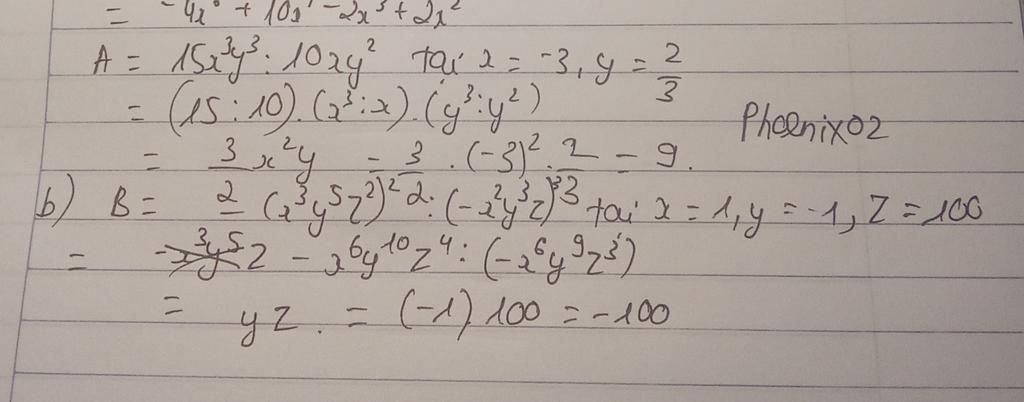 = -4x⁶ + 10x⁴ - 2x³ + 2x²
A = 15x³y³ : 10xy² tại x = -3, y = 2/3
= (15 : 10).(x³ : x).(y³ : y²)
Phoenix02
= 3/2 x²y = 3/2 . (-3)² . 2/3 = 9.
b) B = (x³y⁵z²)² : (-x²y³z)³ tại x = 1, y = -1, z = 100
= x⁶y¹⁰z⁴ : (-x⁶y⁹z³)
= yz. = (-1) 100 = -100